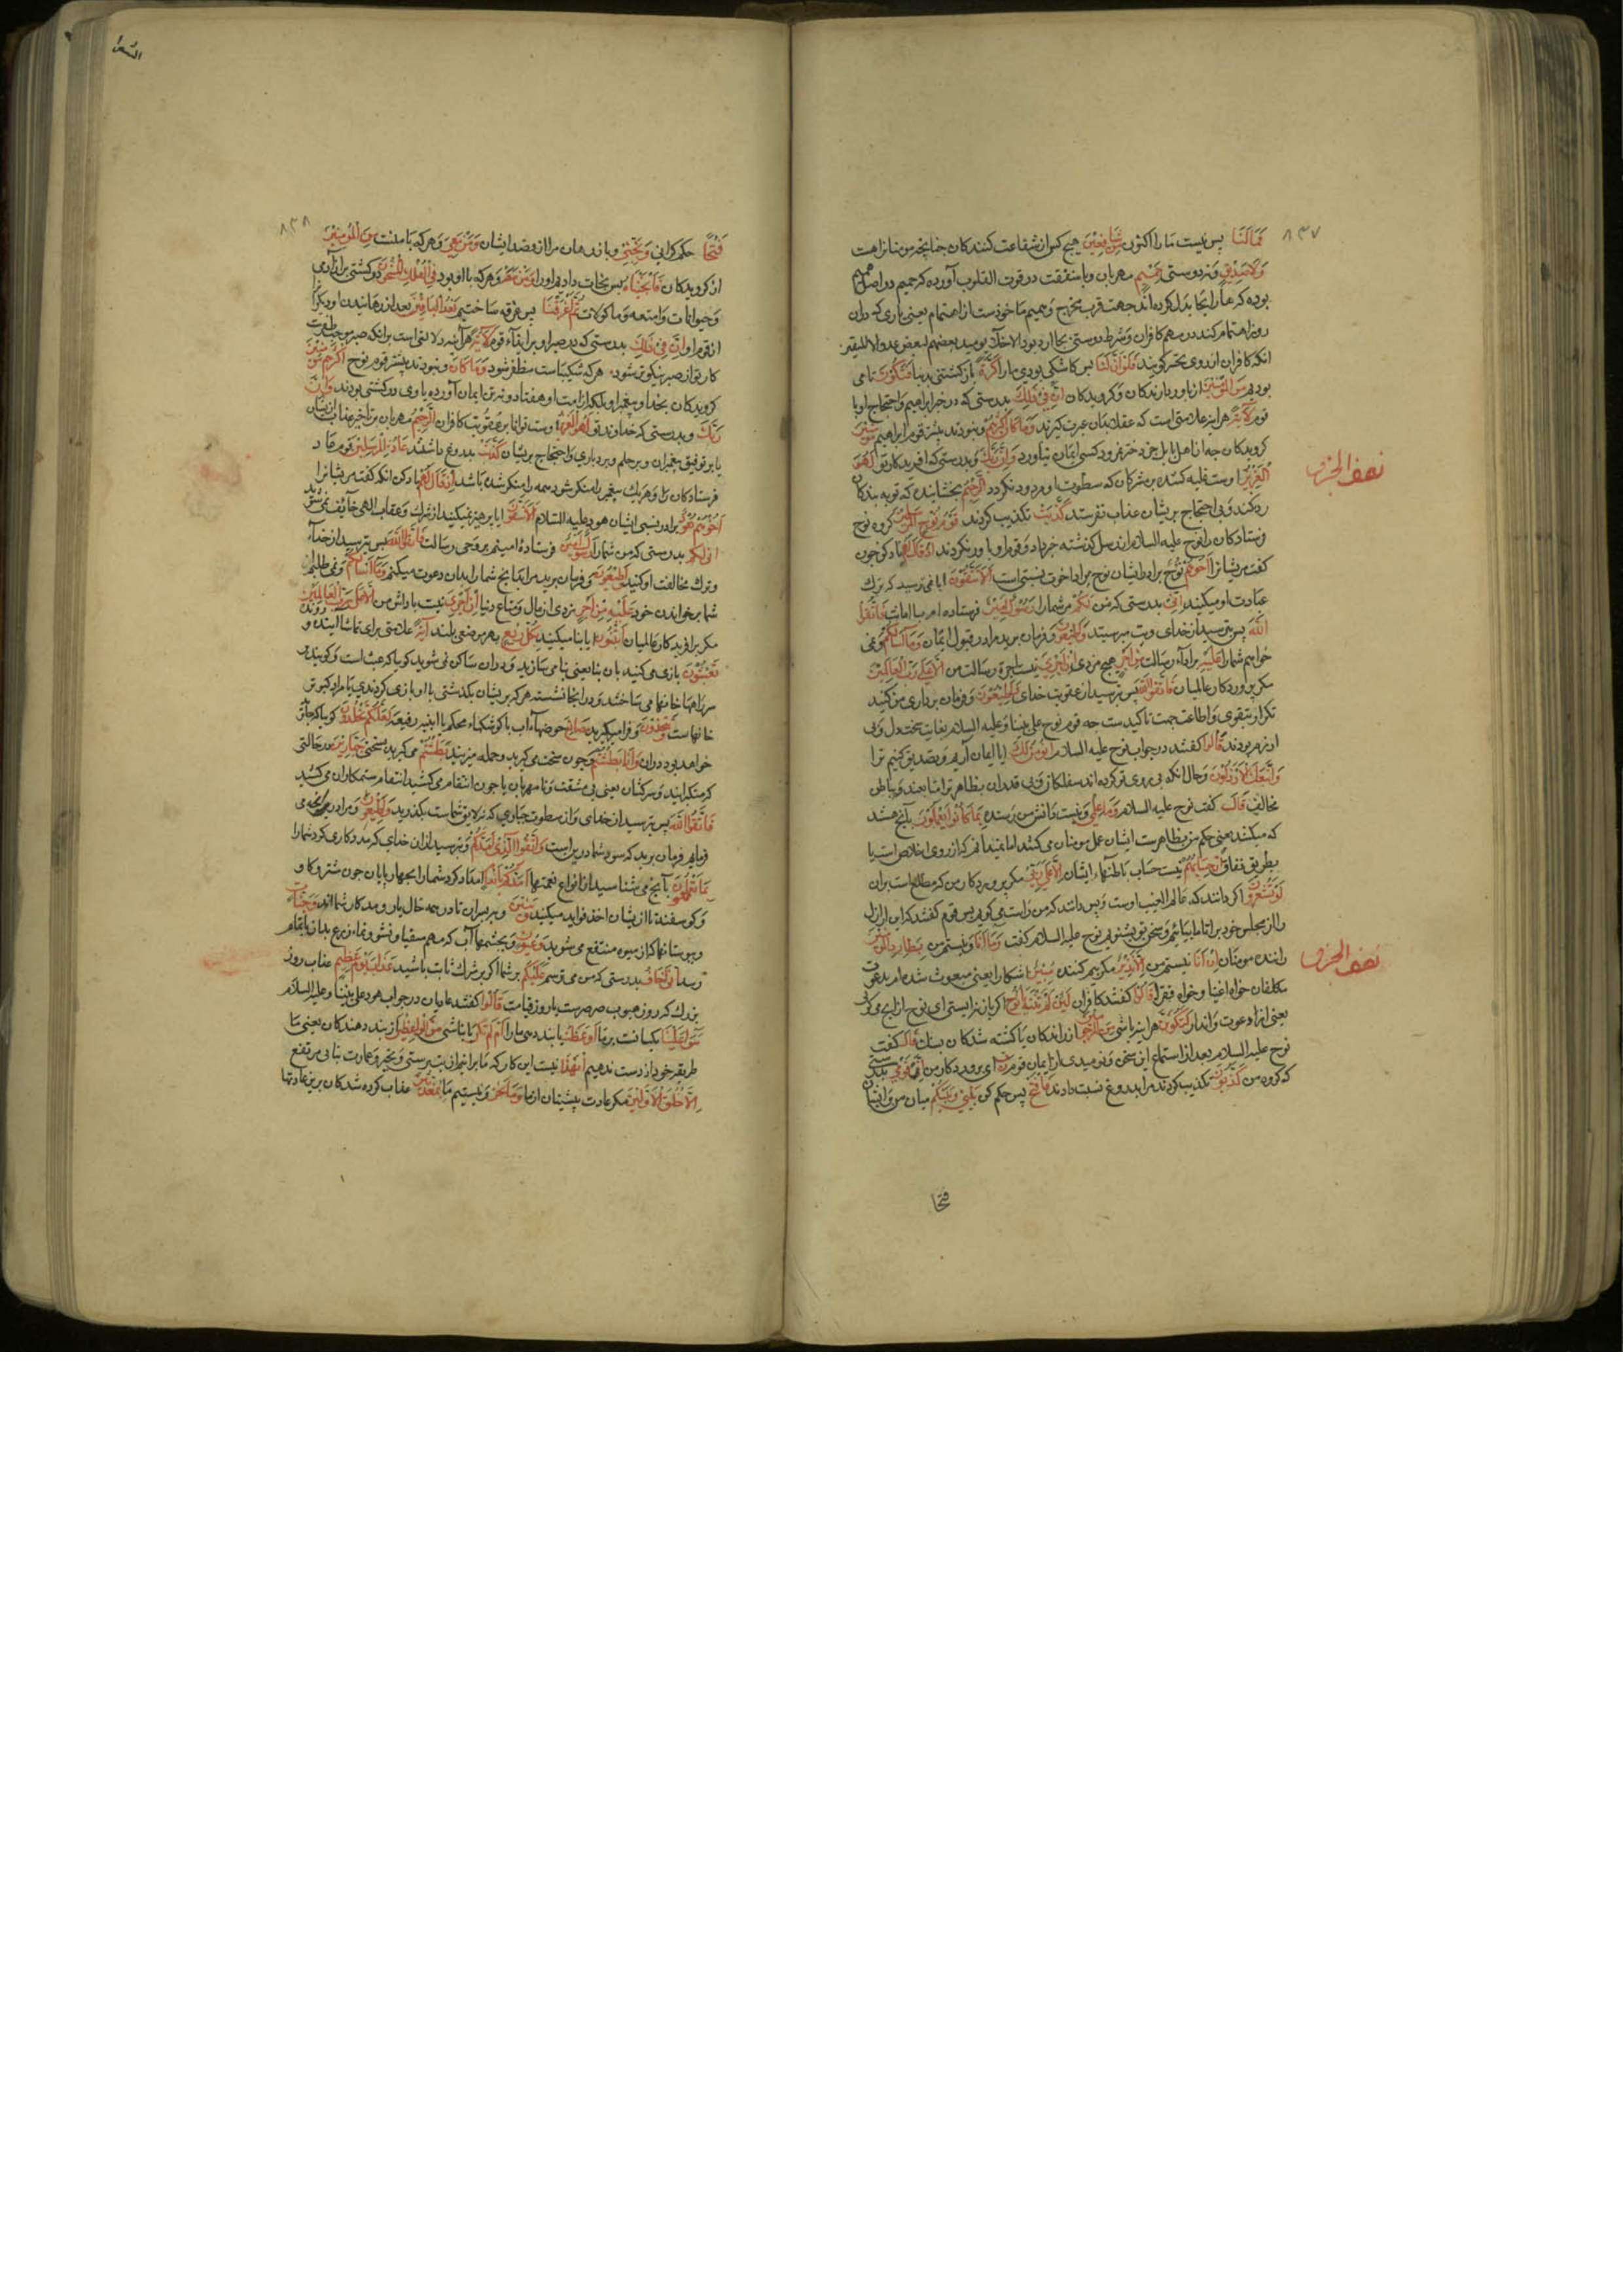 ٨٣٧
فَمَا لَنَا پس نیست ما را اکنون مِن شَافِعِینَ هیچ کس از شفاعت کنندکان چنانچه مومنانراهست
وَلَا صَدِیقٍ و نه دوستی حَمِیمٍ مهربان و با شفقت در قوت القلوب آورده که حمیم در اصل همیم
بوده که ها را بحا بدل کرده اند جهت قرب مخرج و همیم ماخوذست از اهتمام یعنی یاری که در آن
روز اهتمام کند در مهم کافران و شرط دوستی بجا آرد نبود الاخلاء یومئذ بعضهم لبعض عدو الا المتقین
انکه کافران از روی تحسر کویند فَلَوْ أَنَّ لَنَا پس کاشکی بودی ما را کَرَّةً باز کشتنی بدنیا فَنَکُونَ تا می
بودیم مِنَ الْمُؤْمِنِینَ از باور دارندکان و کرویدکان إِنَّ فِی ذَلِكَ بدرستی که در خبر ابراهیم و احتجاج او با
قوم لَآیَةً هر اینه علامتی است که عقلا بدان عبرت کیرند وَمَا کَانَ أَکْثَرُهُمْ و نبودند بیشتر قوم ابراهیم مُؤْمِنِینَ
کرویدکان چه از اهل بابل جز دختر نمرود کسی ایمان نیاورد وَإِنَّ رَبَّكَ و بدرستی که آفریدکار تو لَهُوَ
نصف الجزء
الْعَزِیزُ اوست غلبه کننده بر مشرکان که سطوت او مردود نکردد الرَّحِیمُ بخشاینده که توبه بندکان
رد نکند و بی احتجاج بر یشان عذاب نفرستد کَذَّبَتْ تکذیب کردند قَوْمُ نُوحٍ الْمُرْسَلِینَ کروه نوح
فرستادکان را نوح علیه السلام از رسل کذشته خبر داد و قوم او باور نکردند إِذْ قَالَ لَهُمْ یاد کن چون
کفت مر یشانرا أَخُوهُمْ نُوحٌ برادر ایشان نوح مراد اخوت نسبتی است أَلَا تَتَّقُونَ ایا نمی ترسید که ترك
عبادت او میکنید إِنِّی بدرستی که من لَکُمْ مر شما را رَسُولٌ أَمِینٌ فرستاده ام با امانت فَاتَّقُوا
اللَّهَ پس بترسید از خدای وَأَطِیعُونِ و فرمان برید مرا در قبول ایمان وَمَا أَسْأَلُکُمْ و نمی
خواهم شما را عَلَیْهِ بر اداء رسالت مِنْ أَجْرٍ هیچ مزدی إِنْ أَجْرِیَ نیست اجرة رسالت من إِلَّا عَلَی رَبِّ الْعَالَمِینَ
مکر بر پروردکار عالمیان فَاتَّقُوا اللَّهَ پس بترسید از عقوبت خدای وَأَطِیعُونِ و فرمان برداری من کنید
تکرار بتقوی و اطاعت جهت تاکیدست چه قوم نوح علی نبینا و علیه السلام بغایت سخت دل و بی
ازرم بودند قَالُوا کفتند در جواب نوح علیه السلام أَنُؤْمِنُ لَكَ ایا ایمان آریم و تصدیق کنیم ترا
وَاتَّبَعَكَ الْأَرْذَلُونَ و حال انکه پی روی تو کرده اند سفلکان و بی قدران بظاهر ترا متابعند و بباطن
مخالف قَالَ کفت نوح علیه السلام وَمَا عِلْمِی و نیست دانش من رسنده بِمَا کَانُوا یَعْمَلُونَ بآنچه هستند
که میکنند یعنی حکم من بظاهرست ایشان عمل مومنان می کنند اما نمیدانم که از روی اخلاص است یا
بطریق نفاق إِنْ حِسَابُهُمْ نیست حساب باطنهاء ایشان إِلَّا عَلَی رَبِّی مکر بر پروردکار من که مطلع است بران
لَوْ تَشْعُرُونَ اکر دانند که عالم الغیب اوست و پس دانند که من راست می کویم پس قوم کفتند که این اراذل
را از مجلس خود بران تا ما بیائیم و سخن تو بشنویم نوح علیه السلام کفت وَمَا أَنَا و نیستم من بِطَارِدِ الْمُؤْمِنِینَ
نصف الجزء
راننده مومنان إِنْ أَنَا نیستم من إِلَّا نَذِیرٌ مکر بیم کننده مُبِینٌ آشکارا یعنی مبعوث شده ام بدعوت
مکلفان خواه اغنیا و خواه فقرا قَالُوا کفتند کافران لَئِن لَّمْ تَنتَهِ یَا نُوحُ اکر باز نه ایستی ای نوح از انچه می کوئی
یعنی از دعوت و انذار لَتَکُونَنَّ هر اینه باشی مِنَ الْمَرْجُومِینَ از راندکان یا کشته شدکان بسنك قَالَ کفت
نوح علیه السلام بعد از استماع این سخن و نومیدی از ایمان قوم رَبِّ ای پروردکار من إِنَّ قَوْمِی بدرستی
که کروه من کَذَّبُونِ تکذیب کردند مرا بدروغ نسبت دادند فَافْتَحْ پس حکم کن بَیْنِی وَبَیْنَهُمْ میان من و میان ایشان
فتحا
الشعرا
٨٣٨
فَتْحًا حکم کردنی وَنَجِّنِی و باز رهان مرا از قصد ایشان وَمَن مَّعِیَ و هر که با منست مِنَ الْمُؤْمِنِینَ
از کرویدکان فَأَنجَیْنَاهُ پس نجات دادیم او را وَمَن مَّعَهُ و هر که با او بود فِی الْفُلْكِ الْمَشْحُونِ در کشتی پر از آدمی
و حیوانات و امتعه و ماکولات ثُمَّ أَغْرَقْنَا پس غرقه ساختیم بَعْدُ الْبَاقِینَ بعد از رهانیدن او دیکرانرا
از قوم او إِنَّ فِی ذَلِكَ بدرستی که در صبر او بر ایذاء قوم لَآیَةً هر آینه دلالتی است بر انکه صبر موجب ظفرست
کار تو از صبر نیکوتر شود هر که شکیباست مظفر شود وَمَا کَانَ و نبودند بیشتر قوم نوح أَکْثَرُهُم مُّؤْمِنِینَ
کرویدکان بخدا و پیغمبر او بلکه از امت او هفتاد و نه تن ایمان آورده با وی در کشتی بودند وَإِنَّ
رَبَّكَ و بدرستی که خداوند تو لَهُوَ الْعَزِیزُ اوست توانا بر عقوبت کافران الرَّحِیمُ مهربان بتاخیر عذاب از یشان
یا بر توفیق پیغمبران و بر حلم و بردباری و احتجاج بر یشان کَذَّبَتْ بدروغ داشتند عَادٌ الْمُرْسَلِینَ قوم عاد
فرستادکان را و هر یك پیغمبر را منکر شود همه را منکر شده باشد إِذْ قَالَ لَهُمْ یاد کن انکه کفت مر یشانرا
أَخُوهُمْ هُودٌ برادر نسبی ایشان هود علیه السلام أَلَا تَتَّقُونَ ایا پرهیز نمیکنید از شرك و عقاب الهی خائف نمی شوید
إِنِّی لَکُمْ بدرستی که من شما را رَسُولٌ أَمِینٌ فرستادۀ امینم بر وحی رسالت فَاتَّقُوا اللَّهَ پس بترسید از خدآء
و ترك مخالفت او کنید وَأَطِیعُونِ و فرمان برید مرا بدانچه شما را بدان دعوت میکنم وَمَا أَسْأَلُکُمْ و نمی طلبم
شما بر خواندن خود عَلَیْهِ مِنْ أَجْرٍ مزدی از مال و متاع دنیا إِنْ أَجْرِیَ نیست پاداش من إِلَّا عَلَی رَبِّ الْعَالَمِینَ
مکر بر آفریدکار عالمیان أَتَبْنُونَ ایا بنا میکنید بِکُلِّ رِیعٍ بهر موضعی بلند آیَةً علامتی برای تماشا آینده و رونده
تَعْبَثُونَ بازی می کنید بان بنا یعنی بنا می سازید و دران ساکن نمی شوید کویا که عبث است و کویند بر
سر راهها خانها می ساختند و در انجا نشسته هر که بر یشان بکذشتی با او بازی کردندی یا مراد کبوتر
خانهاست وَتَتَّخِذُونَ و فرا میکیرید مَصَانِعَ حوضهاء آب یا کوشکهاء محکم یا ابنیه رفیعه لَعَلَّکُمْ تَخْلُدُونَ کویا که جاوید
خواهد بود دران وَإِذَا بَطَشْتُم و چون سخت می کیرید و حمله میبرید بَطَشْتُمْ می کیرید بسختی جَبَّارِینَ در حالتی
که متکبرانید و سرکشان یعنی بی مشقت و نامهربان یا چون انتقام می کشید انتقام ستمکاران می کشید
فَاتَّقُوا اللَّهَ پس بترسید از خدای و از سطوت جباری که نه لایق شماست بکذرید وَأَطِیعُونِ و مرا در هر چه می
فرمایم فرمان برید که سود شما درین است وَاتَّقُوا الَّذِی أَمَدَّکُم و بترسید ازان خدای که مددکاری کرد شما را
بِمَا تَعْلَمُونَ بآنچه می شناسید از انواع نعمتها أَمَدَّکُم بِأَنْعَامٍ امداد کرد شما را بچهار پایان چون شتر و کاو
و کوسفند تا از یشان اخذ فواید میکنید وَبَنِینَ و بپسران تا در همه حال یار و مددکار شما اند وَجَنَّاتٍ
و ببوستانها که از میوه منتفع می شوید وَعُیُونٍ و بچشمهاء آب که مهم سقیا و نشو و نماء زرع بدان باتمام
رسد إِنِّی أَخَافُ بدرستی که من می ترسم عَلَیْکُمْ بر شما اکر بر شرك ثابت باشید عَذَابَ یَوْمٍ عَظِیمٍ عذاب روز
بزرك که روز هبوب صرصرست یا روز قیامت قَالُوا کفتند عادیان در جواب هود علی نبینا و علیه السلام
سَوَاءٌ عَلَیْنَا یکسانست بر ما أَوَعَظْتَ یا پند دهی ما را أَمْ لَمْ تَکُن یا نباشی مِّنَ الْوَاعِظِینَ از پند دهندکان یعنی ما
طریقه خود از دست ندهیم إِنْ هَذَا نیست این کار که ما برانیم از بت پرستی و تجبر و عمارت بنای مرتفع
إِلَّا خُلُقُ الْأَوَّلِینَ مکر عادت پیشینیان از ما وَمَا نَحْنُ و نیستیم ما بِمُعَذَّبِینَ عذاب کرده شدکان برین عادتها